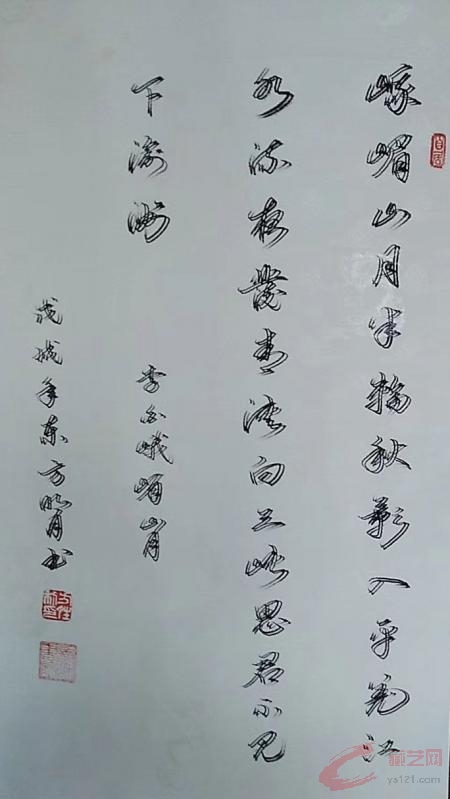 峨嵋山月半輪秋影入平羌江
水流夜發清溪向三峡思君不见
下渝州
李白峨嵋山月
戊戌年东方明月书
ys121.com